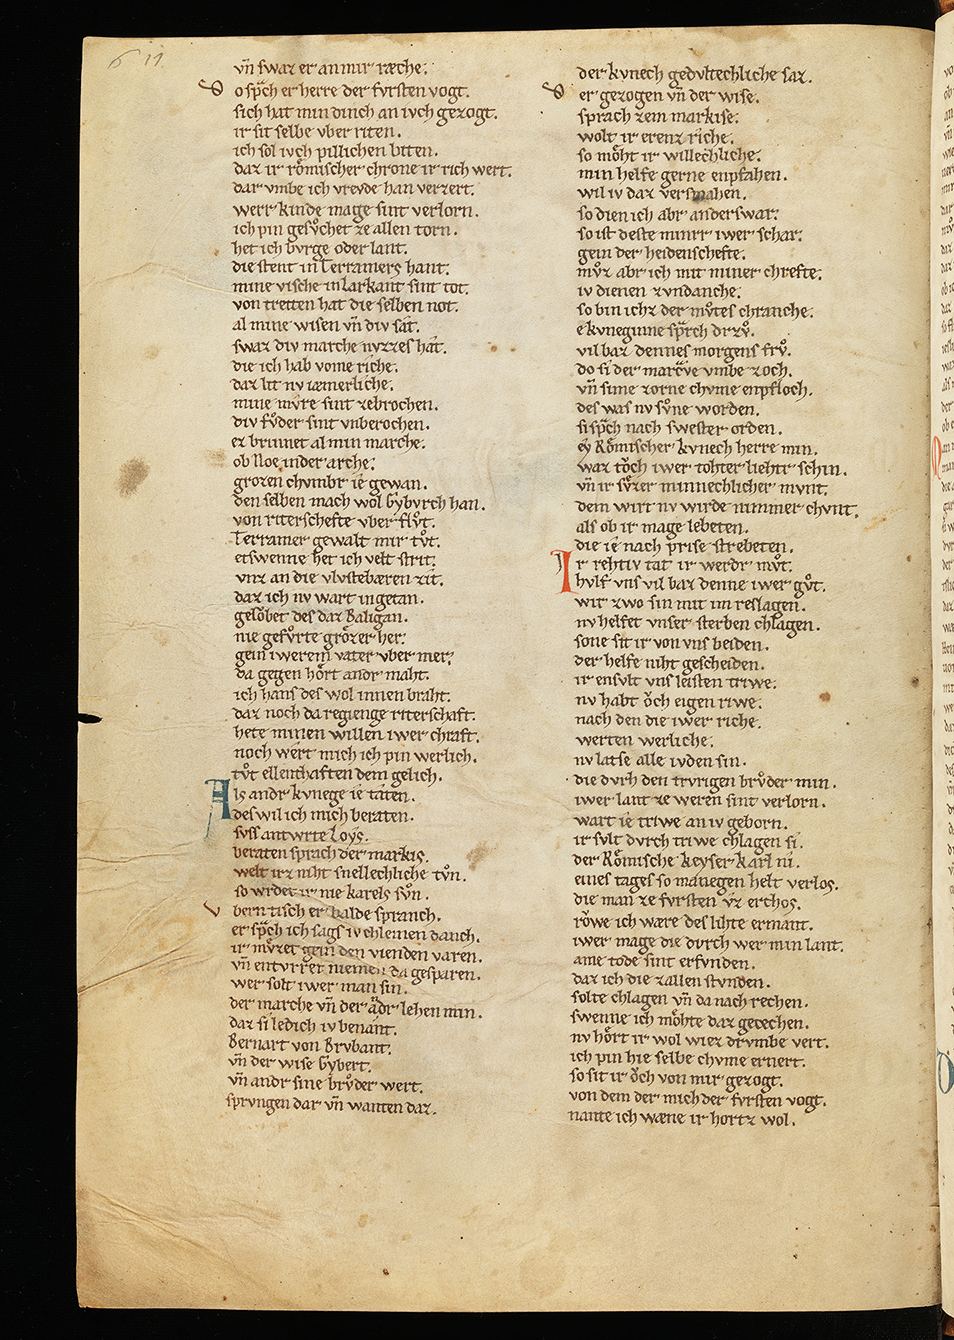 6 11
vn̄ swaz er an mir ræche.
So sp̄ch er herre der fvrsten vogt.
sich hat min dinch an ivch gezogt.
ir sit selbe vber riten.
ich sol ivch pillichen biten.
daz ir rômischer chrone ir rich wert.
dar vmbe ich vrevde han verzert.
werr kinde mage sint verlorn.
ich pin gesv̊chet ze allen torn.
het ich bvrge oder lant.
die stent in Terramers hant.
mine vische in Larkant sint tot.
von tretten hat die selben not.
al mine wisen vn̄ div sat.
swaz div marche nvzzes hat.
die ich hab vome riche.
daz lit nv iæmerliche.
mine mv̊re sint zebrochen.
div fv̊der sint vnberochen.
ez brinnet al min marche.
ob Noe in der arche.
grozen chvmbr ie gewan.
den selben mach wol Gybvrch han.
von riterschefte vber flv̊t.
Terramer gewalt mir tv̊t.
etswenne het ich velt strit.
vnz an die vlvstebæren zit.
daz ich nv wart in getan.
gelôbet des daz Baligan.
nie gefv̊rte grôzer her.
gein iwerem vater vber mer.
da gegen hôrt andr maht.
ich hans des wol innen braht.
daz noch da regienge riterschaft.
hete minen willen iwer chraft.
noch wert mich ich pin werlich.
tv̊t ellenthaften dem gelich.
Als andr kvnege ie taten.
des wil ich mich beraten.
svss antwrte Loys.
beraten sprach der markis.
welt irz niht snellechliche tv̊n.
so wrdet ir nie karels sv̊n.
Vber n tisch er balde spranch.
er sp̄ch ich sags iv chleinen danch.
ir mv̊zet gein den vienden varen.
vn̄ entvrret niemen da gesparen.
wer solt iwer man sin.
der marche vn̄ der ādr lehen min.
daz si ledich iv benant.
Bernart von Brvbant.
vn̄ der wise Gybert.
vn̄ andr sine brv̊der wert.
sprvngen dar vn̄ wanten daz.
der kvnech gedvltechliche saz.
Der gezogen vn̄ der wise.
sprach zem markise.
wolt ir erenz riche.
so môht ir willechliche.
min helfe gerne enpfahen.
wil iv daz versmahen.
so dien ich abr anderswar.
so ist deste minrr iwer schar.
gein der heidenschefte.
mv̊z abr ich mit miner chrefte.
iv dienen zvndanche.
so bin ichz der mv̊tes chranche.
e kvneginne sp̄rch dr zv̊.
vil baz dennes morgens frv̊.
do si der marc̄ve vmbe zoch.
vn̄ sime zorne chvme enpfloch.
des was nv sv̊ne worden.
si sp̄ch nach swester orden.
ey Rômischer kvnech herre min.
waz tôch iwer tohter liehtr schin.
vn̄ ir sv̊zer minnechlicher mvnt.
dem wirt nv wirde nimmer chvnt.
als ob ir mage lebeten.
die ie nach prise strebeten.
Ir rehtiv tat ir werdr mv̊t.
hvlf vns vil baz denne iwer gv̊t.
wir zwo sin mit im reslagen.
nv helfet vnser sterben chlagen.
sone sit ir von vns beiden.
der helfe niht gescheiden.
ir ensvlt vns leisten triwe.
nv habt ôch eigen riwe.
nach den die iwer riche.
werten werliche.
nv latse alle ivden sin.
die dvrh den trvrigen brv̊der min.
iwer lant ze weren sint verlorn.
wart ie triwe an iv geborn.
ir svlt dvrch triwe chlagen si.
der Rômische keyser Karl ni.
eines tages so manegen helt verlos.
die man ze fvrsten v̊z erchos.
rôwe ich wære des lihte ermant.
iwer mage die dvrch wer min lant.
ame tode sint erfvnden.
daz ich die zallen stvnden.
solte chlagen vn̄ da nach rechen.
swenne ich môhte daz gezechen.
nv hôrt ir wol wiez drvmbe vert.
ich pin hie selbe chvme ernert.
so sit ir ôch von mir gezogt.
von dem der mich der fvrsten vogt.
nante ich wæne ir hortz wol.